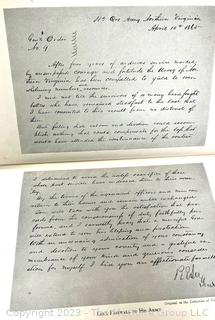 Hd Qrs Army Northern Virginia
April 10th 1865
Genl Order
No 9
After four years of arduous service marked
by unsurpassed courage and fortitude the Army of Nor-
thern Virginia has been compelled to yield to over-
whelming numbers, resources.
I need not tell the survivors of so many hard fought
battles who have remained steadfast to the last that
I have consented to this result from no distrust of
them.
But feeling that valor and devotion could accom-
plish nothing that could compensate for the loss that
would have attended the continuance of the contest
I determined to avoid the useless sacrifice of those
whose past services have endeared them to their coun-
try.
By the terms of the agreement officers and men can
return to their homes and remain until exchanged.
You will take with you the satisfaction that pro-
ceeds from the consciousness of duty faithfully per-
formed, and I earnestly pray that a merciful God
will extend to you His blessing and protection.
With an unceasing admiration of your constancy
and devotion to your country and a grateful re-
membrance of your kind and generous consider-
ation for myself, I bid you an affectionate farewell
R E Lee
Genl
Original in the Collection of
LEE'S FAREWELL TO HIS ARMY
© 2023 -